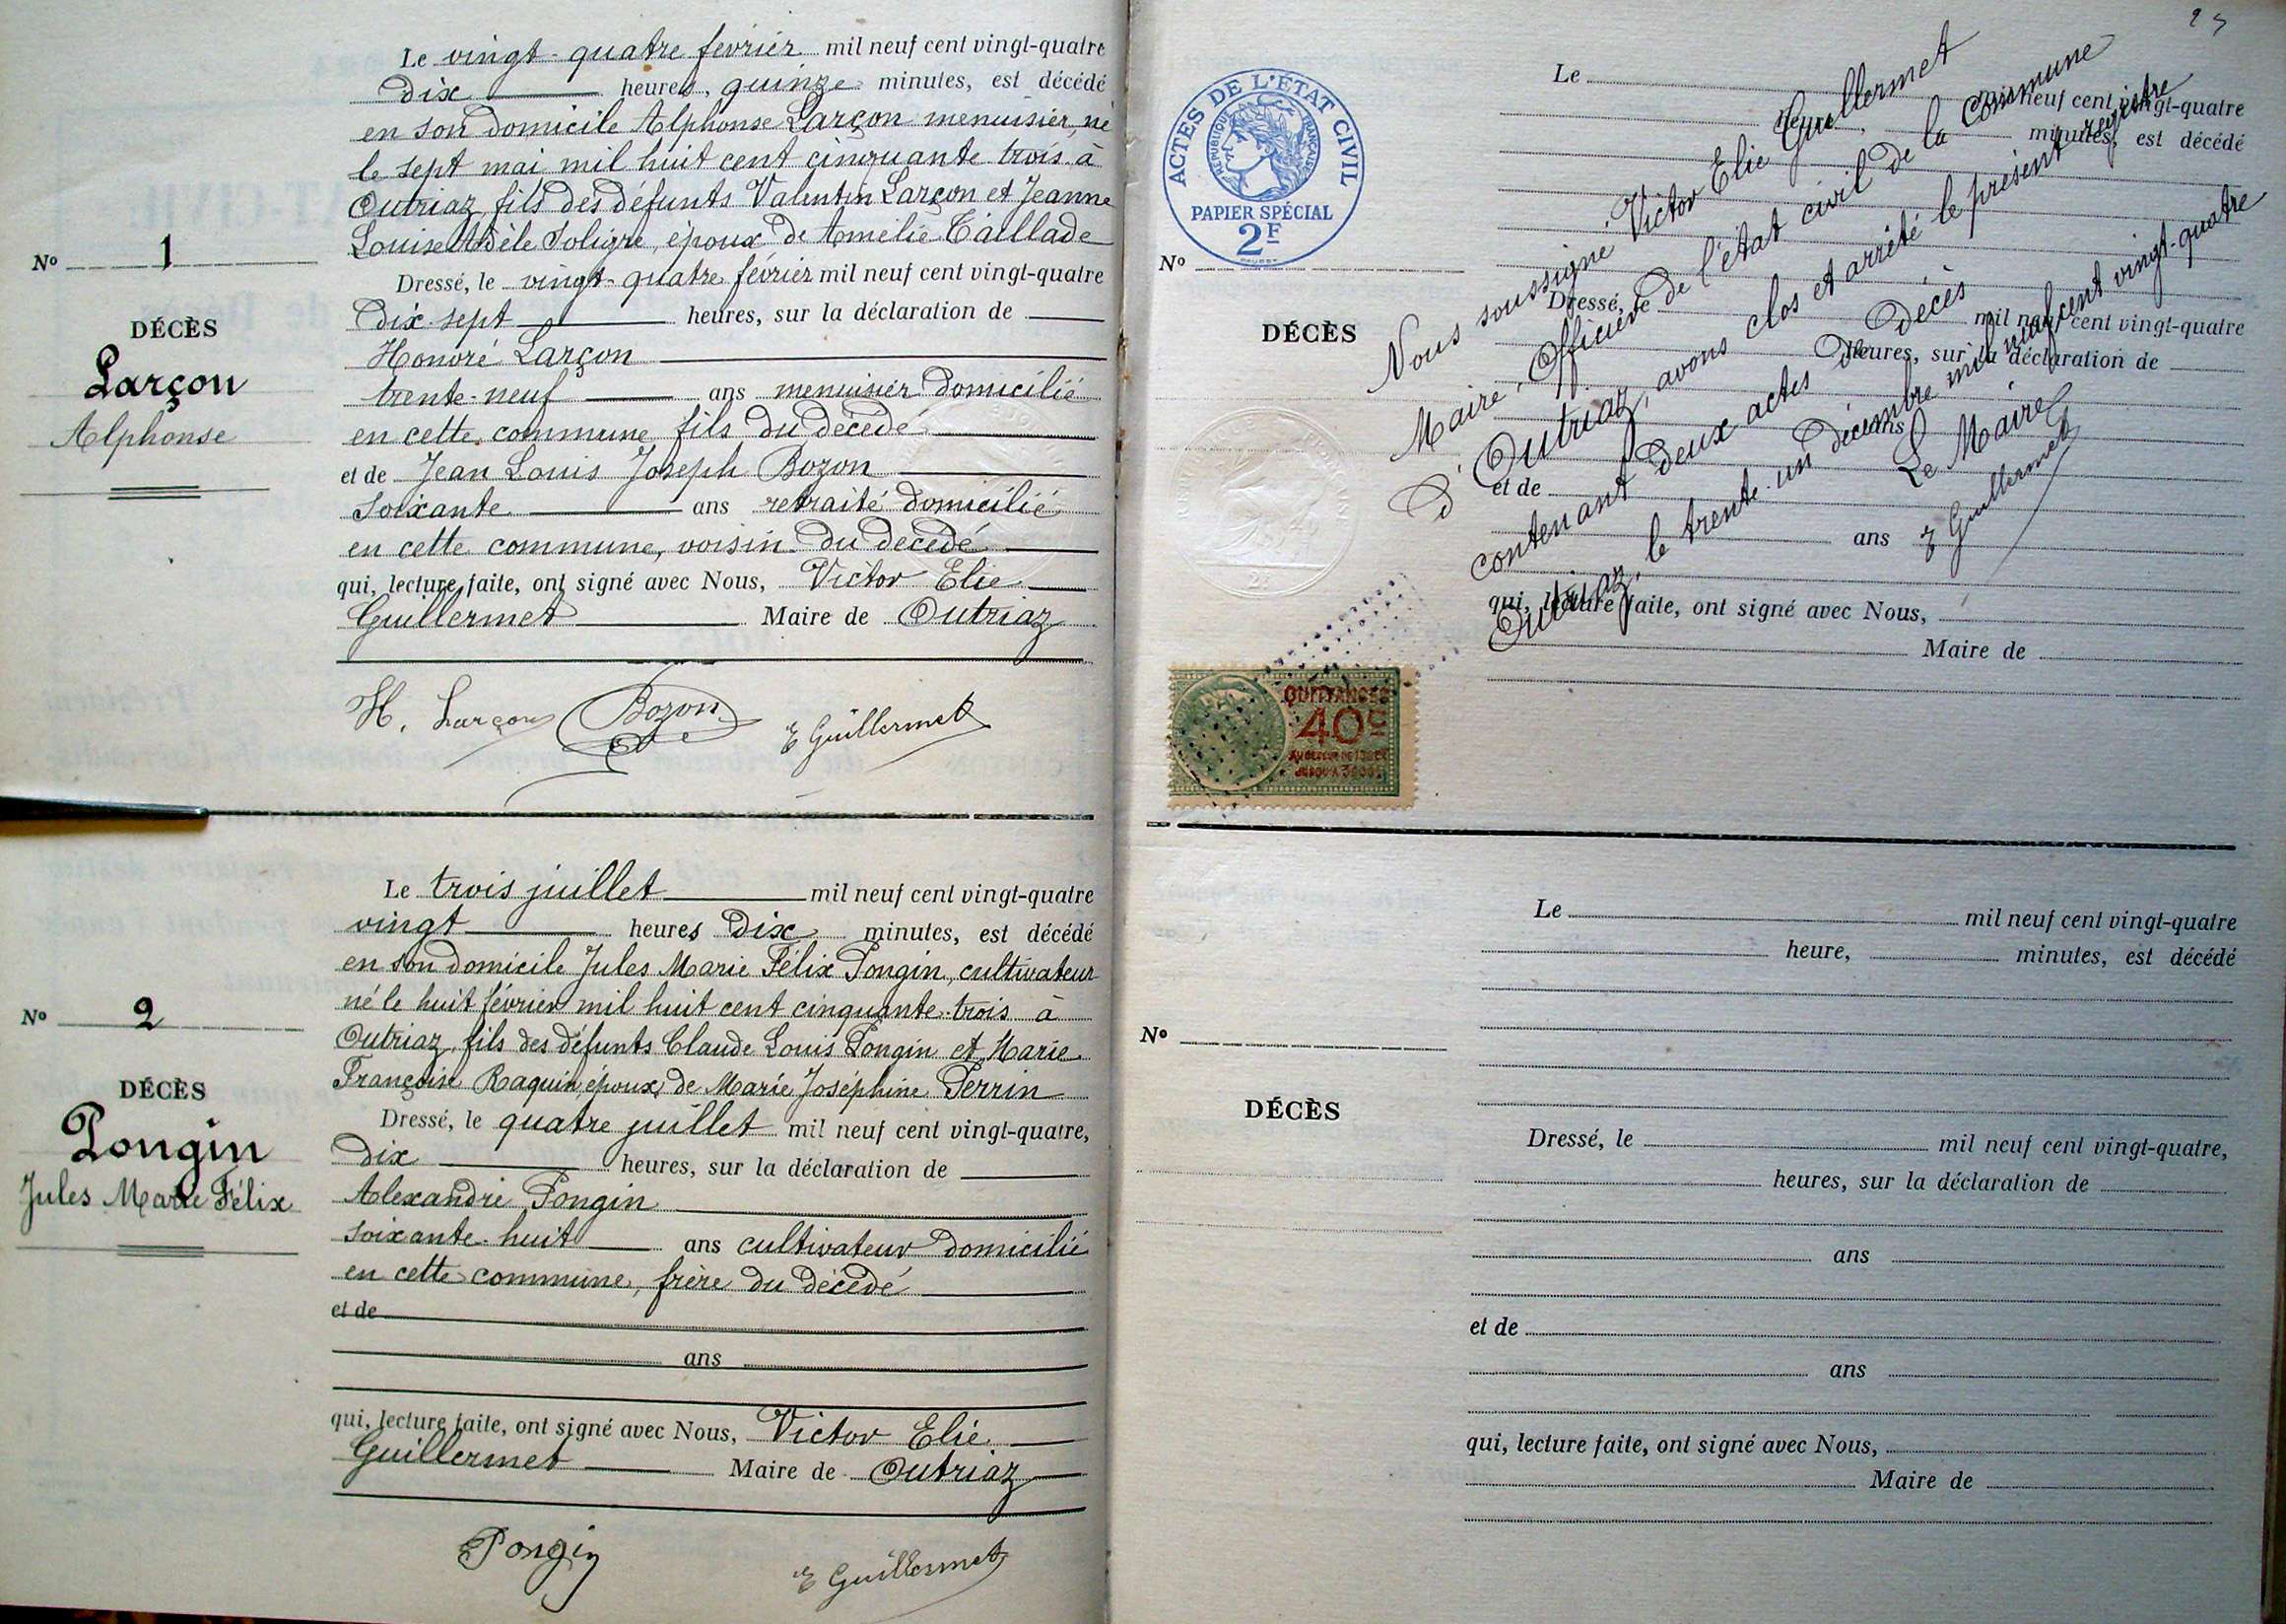 Le vingt-quatre février mil neuf cent vingt-quatre
dix heures, quinze minutes, est décédé
en son domicile Alphonse Larçon menuisier, né
le sept mai mil huit cent cinquante trois à
Outriaz, fils des défunts Valentin Larçon et Jeanne
Louise Adèle Soligre, époux de Amélie Taillade
Dressé, le vingt-quatre février mil neuf cent vingt-quatre
dix-sept heures, sur la déclaration de
Honoré Larçon
trente-neuf ans menuisier domicilié
en cette commune, fils du décédé
et de Jean Louis Joseph Bozon
soixante ans retraité domicilié
en cette commune, voisin du décédé
qui, lecture faite, ont signé avec Nous, Victor Elie
Guillermet Maire de Outriaz
H. Larçon Bozon E Guillermet
No 1
DÉCÈS
Larçon
Alphonse
Le trois juillet mil neuf cent vingt-quatre
vingt heures dix minutes, est décédé
en son domicile Jules Marie Félix Pongin, cultivateur
né le huit février mil huit cent cinquante-trois à
Outriaz, fils des défunts Claude Louis Pongin et Marie
Françoise Raquin, époux de Marie Joséphine Perrin
Dressé, le quatre juillet mil neuf cent vingt-quatre,
dix heures, sur la déclaration de
Alexandre Pongin
soixante-huit ans cultivateur domicilié
en cette commune, frère du décédé
et de
ans
qui, lecture faite, ont signé avec Nous, Victor Elie
Guillermet Maire de Outriaz
Pongin E Guillermet
No 2
DÉCÈS
Pongin
Jules Marie Félix
ACTES DE L'ÉTAT CIVIL
RÉPUBLIQUE FRANÇAISE
PAPIER SPÉCIAL
2F
No
DÉCÈS
QUITTANCES
40c
Le neuf cent vingt-quatre
heure, minutes, est décédé
Dressé, le mil neuf cent vingt-quatre
heures, sur la déclaration de
ans
et de
ans
qui, lecture faite, ont signé avec Nous,
Maire de
Nous soussigné Victor Elie Guillermet
Maire, Officier de l'état civil de la commune
d'Outriaz, avons clos et arrêté le présent registre
contenant deux actes de Décès
Outriaz, le trente-un décembre mil neuf cent vingt-quatre
Le Maire
E Guillermet
No
DÉCÈS
Le mil neuf cent vingt-quatre
heure, minutes, est décédé
Dressé, le mil neuf cent vingt-quatre,
heures, sur la déclaration de
ans
et de
ans
qui, lecture faite, ont signé avec Nous,
Maire de